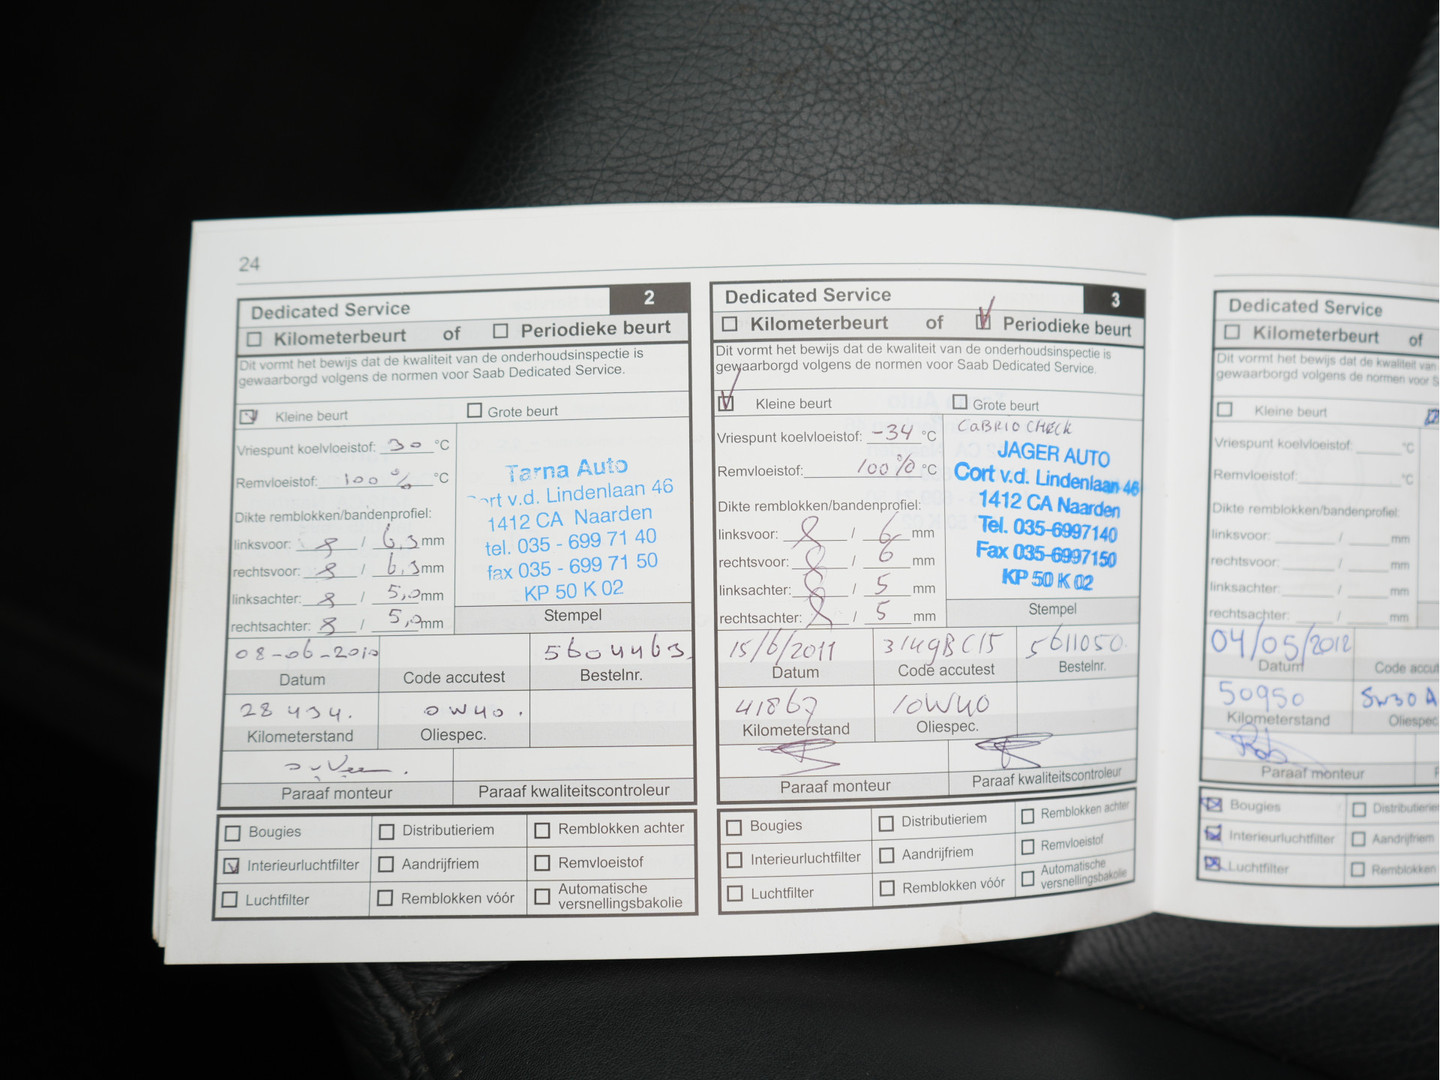 24
Dedicated Service 2
Kilometerbeurt of Periodieke beurt
Dit vormt het bewijs dat de kwaliteit van de onderhoudsinspectie is
gewaarborgd volgens de normen voor Saab Dedicated Service.
Kleine beurt Grote beurt
Vriespunt koelvloeistof: 30 °C
Remvloeistof: 100 % °C
Dikte remblokken/bandenprofiel:
linksvoor: 8 / 6,5 mm
rechtsvoor: 8 / 6,5 mm
linksachter: 8 / 5,0 mm
rechtsachter: 8 / 5,0 mm
Tarna Auto
Cort v.d. Lindenlaan 46
1412 CA Naarden
tel. 035 - 699 71 40
fax 035 - 699 71 50
KP 50 K 02
Stempel
08-06-2010 5604463
Datum Code accutest Bestelnr.
28434. 0W40.
Kilometerstand Oliespec.
Paraaf monteur Paraaf kwaliteitscontroleur
Bougies Distributieriem Remblokken achter
Interieurluchtfilter Aandrijfriem Remvloeistof
Luchtfilter Remblokken vóór Automatische
versnellingsbakolie
Dedicated Service 3
Kilometerbeurt of Periodieke beurt
Dit vormt het bewijs dat de kwaliteit van de onderhoudsinspectie is
gewaarborgd volgens de normen voor Saab Dedicated Service.
Kleine beurt Grote beurt
Vriespunt koelvloeistof: -34 °C
Remvloeistof: 100% °C
Dikte remblokken/bandenprofiel:
linksvoor: 8 / 6 mm
rechtsvoor: 8 / 6 mm
linksachter: 8 / 5 mm
rechtsachter: 8 / 5 mm
CABRIO CHECK
JAGER AUTO
Cort v.d. Lindenlaan 46
1412 CA Naarden
Tel. 035-6997140
Fax 035-6997150
KP 50 K 02
Stempel
15/6/2011 314gBC15 5611050
Datum Code accutest Bestelnr.
41867 10W40
Kilometerstand Oliespec.
Paraaf monteur Paraaf kwaliteitscontroleur
Bougies Distributieriem Remblokken achter
Interieurluchtfilter Aandrijfriem Remvloeistof
Luchtfilter Remblokken vóór Automatische
versnellingsbakolie
Dedicated Service
Kilometerbeurt of
Dit vormt het bewijs dat de kwaliteit van
gewaarborgd volgens de normen voor S
Kleine beurt
Vriespunt koelvloeistof: °C
Remvloeistof: °C
Dikte remblokken/bandenprofiel:
linksvoor: / mm
rechtsvoor: / mm
linksachter: / mm
rechtsachter: / mm
04/05/2012
Datum Code accut
50950 5W30 A
Kilometerstand Oliespec
Rob
Paraaf monteur P
Bougies Distributierie
Interieurluchtfilter Aandrijfrie
Luchtfilter Remblokken